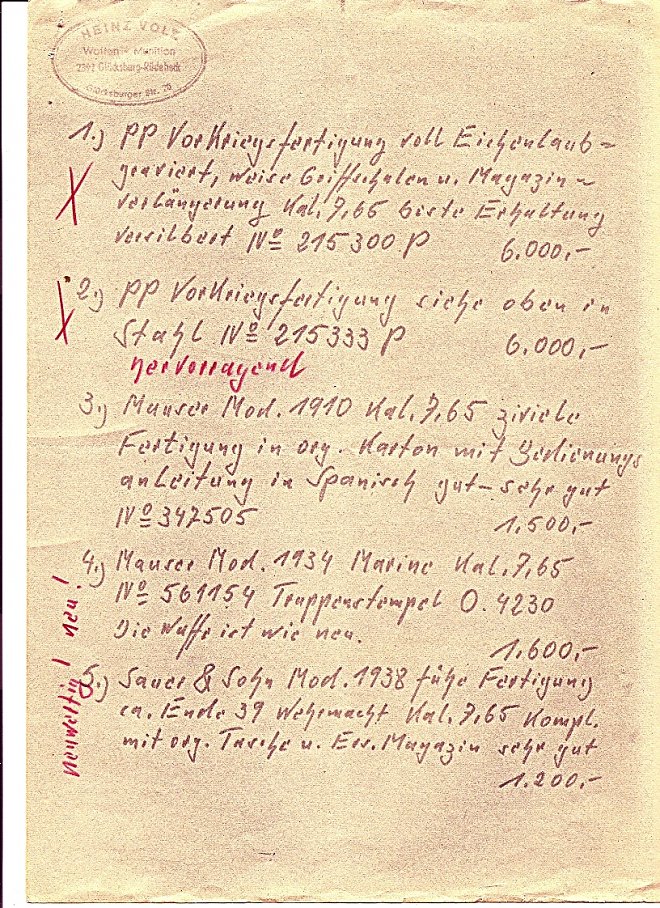 HEINZ VOLT
Waffen - Munition
2392 Glücksburg-Rüdeheck
Glücksburger Str. 70
1.) PP Vorkriegsfertigung voll Eichenlaub=
graviert, weise Griffschalen u. Magazin=
verlängerung Kal. 7,65 beste Erhaltung
versilbert No 215300 P 6.000,-
2.) PP Vorkriegsfertigung siehe oben in
Stahl No 215333 P 6.000,-
hervorragend
3.) Mauser Mod. 1910 Kal. 7,65 zivile
Fertigung in org. Karton mit Bedienungs
anleitung in Spanisch gut - sehr gut
No 347505 1.500,-
4.) Mauser Mod. 1934 Marine Kal. 7,65
No 561154 Truppenstempel O. 4230
Die Waffe ist wie neu. 1.600,-
5.) Sauer & Sohn Mod. 1938 frühe Fertigung
ca. Ende 39 Wehrmacht Kal. 7,65 kompl.
mit org. Tasche u. Ers. Magazin sehr gut
1.200,-
neuwertig! neu!